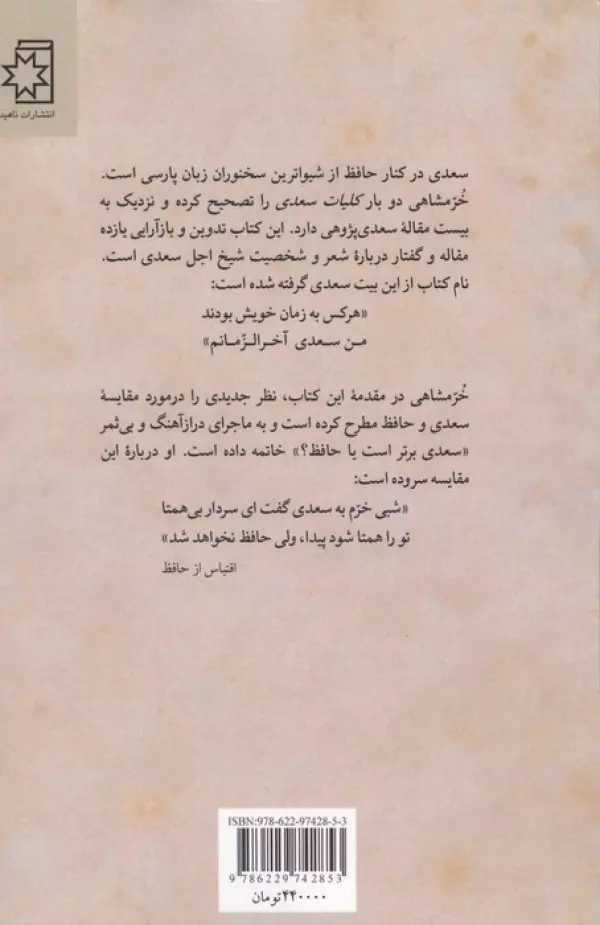 انتشارات ناهید
سعدی در کنار حافظ از شیواترین سخنوران زبان پارسی است.
خُرّمشاهی دو بار کلیات سعدی را تصحیح کرده و نزدیک به
بیست مقالهٔ سعدی‌پژوهی دارد. این کتاب تدوین و بازآرایی یازده
مقاله و گفتار دربارهٔ شعر و شخصیت شیخ اجل سعدی است.
نام کتاب از این بیت سعدی گرفته شده است:
«هرکس به زمان خویش بودند
من سعدی آخرالزّمانم»
خُرّمشاهی در مقدمهٔ این کتاب، نظر جدیدی را درمورد مقایسهٔ
سعدی و حافظ مطرح کرده است و به ماجرای درازآهنگ و بی‌ثمر
«سعدی برتر است یا حافظ؟» خاتمه داده است. او دربارهٔ این
مقایسه سروده است:
«شبی خرّم به سعدی گفت ای سردار بی‌همتا
تو را همتا شود پیدا، ولی حافظ نخواهد شد»
اقتباس از حافظ
ISBN:978-622-97428-5-3
9 786229 742853
۴۴۰۰۰۰تومان